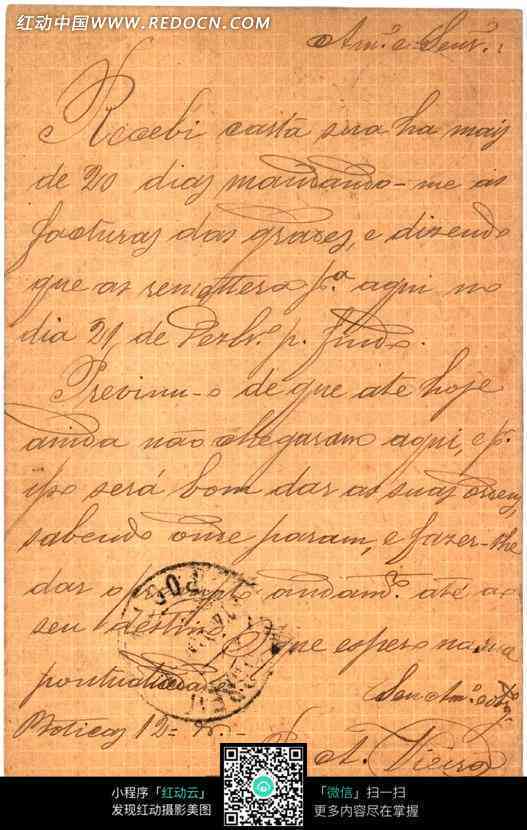 红动中国 WWW.REDOCN.COM
Am.º e Senr.:
Recebi carta sua ha mais
de 20 dias mandando-me as
facturas das grades, e dizendo
que as remettera p.ª aqui no
dia 21, de Dezbr.º p. findo.
Previnu-o de que até hoje
ainda não chegaram aqui, e p.
isso será bom dar as suas ordens,
sabendo onde param, e fazer-lhe
dar o andam.to até ao
seu destino. que espero na sua
pontualidade
Senr Am.º
Boticas 12=
A. Vieira
小程序「红动云」
发现红动摄影美图
「微信」扫一扫
更多内容尽在掌握